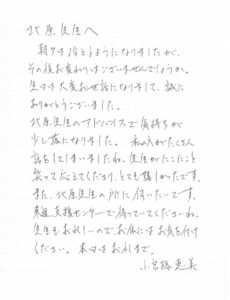 北原先生へ
朝夕は冷えるようになりましたが、
その後お変わりはございませんでしょうか。
先日は大変お世話になりまして、誠に
ありがとうございました。
北原先生のアドバイスで気持ちが
少し楽になりました。 私がたくさん
話をしてしまいましたね。先生がにこにこと
笑って応えてくださり、とても嬉しかったです。
また、北原先生の所に伺いたいです。
支援センターで待っていてくださいね。
先生もお忙しいのでお体にはお気を付け
ください。本日はお礼まで。
小宮 恵美